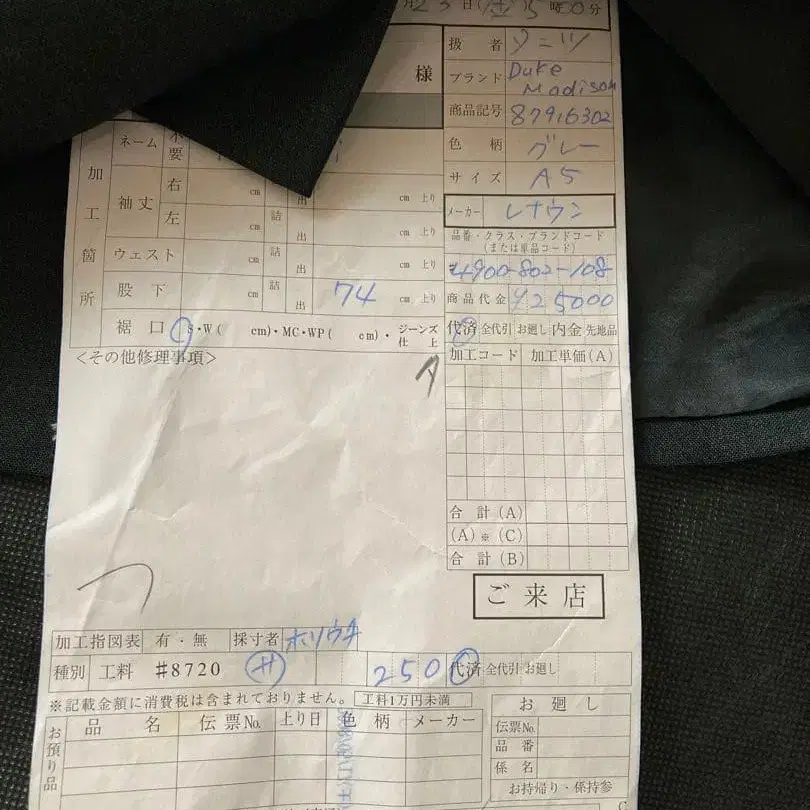 月23日(土)15時00分
様
扱者 ソーツ
ブランド Duke Madison
商品記号 87916302
色柄 グレー
サイズ A5
メーカー レナウン
品番・クラス・ブランドコード
(または単品コード)
4900-802-108
商品代金 ¥25000
代済 全代引 お廻し 内金 先地品
加工箇所
ネーム 不要
袖丈 右 cm 詰 出 cm 上り
左 cm cm 上り
ウェスト cm 詰 出 cm 上り
股下 cm 詰 出 74 cm 上り
裾口 S・W( cm)・MC・WP( cm)・ジーンズ仕上
<その他修理事項>
加工コード 加工単価(A)
合計(A)
(A)※(C)
合計(B)
ご来店
加工指図表 有・無 採寸者 ホリウチ
種別 工料 #8720 サ 250 代済 全代引 お廻し
※記載金額に消費税は含まれておりません。 工料1万円未満
お預り品 品名 伝票No. 上り日 色柄 メーカー
お廻し
伝票No.
品番
係名
お持帰り・係持参